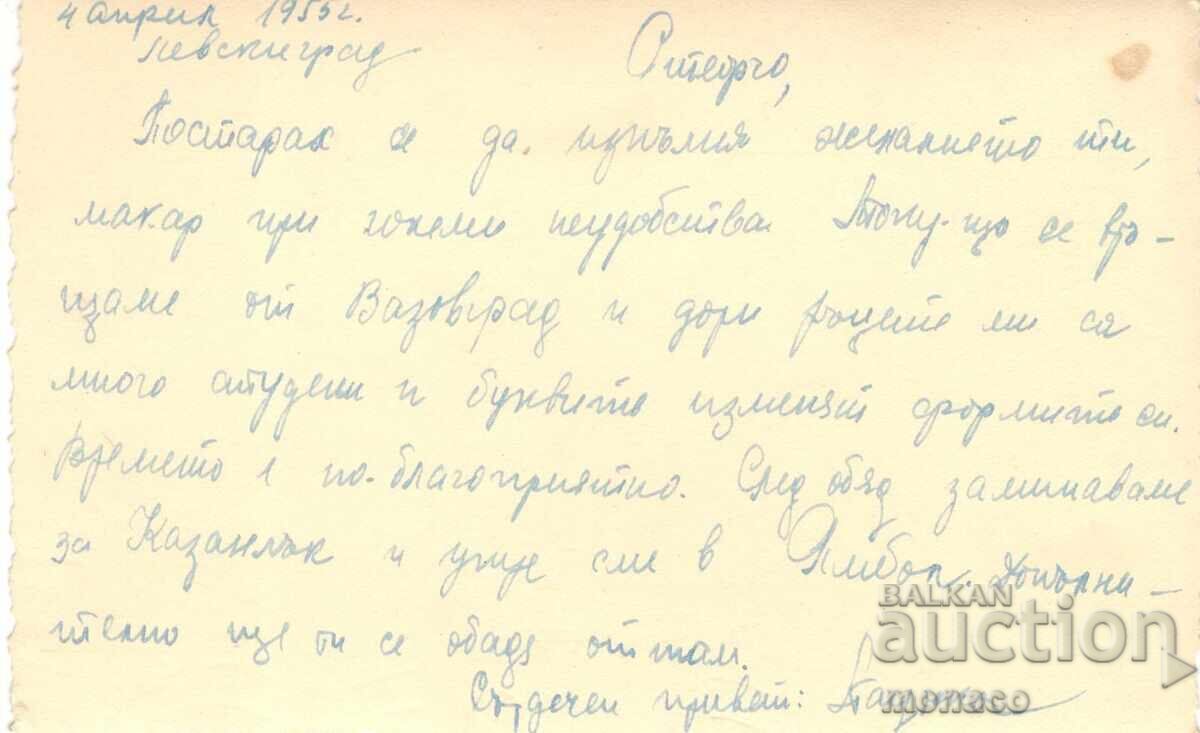 4 април 1955г.
Левскиград
Стефчо,
Постарах се да изпълня желанието ти,
макар при големи неудобства. Току-що се връ-
щаме от Вазовград и дори ръцете ми са
много студени и буквите изменят формите си.
Времето е по-благоприятно. След обяд заминаваме
за Казанлък и утре сме в Ямбол. Допълни-
телно ще ти се обадя оттам.
Сърдечен привет:
BALKAN
auction
monaco